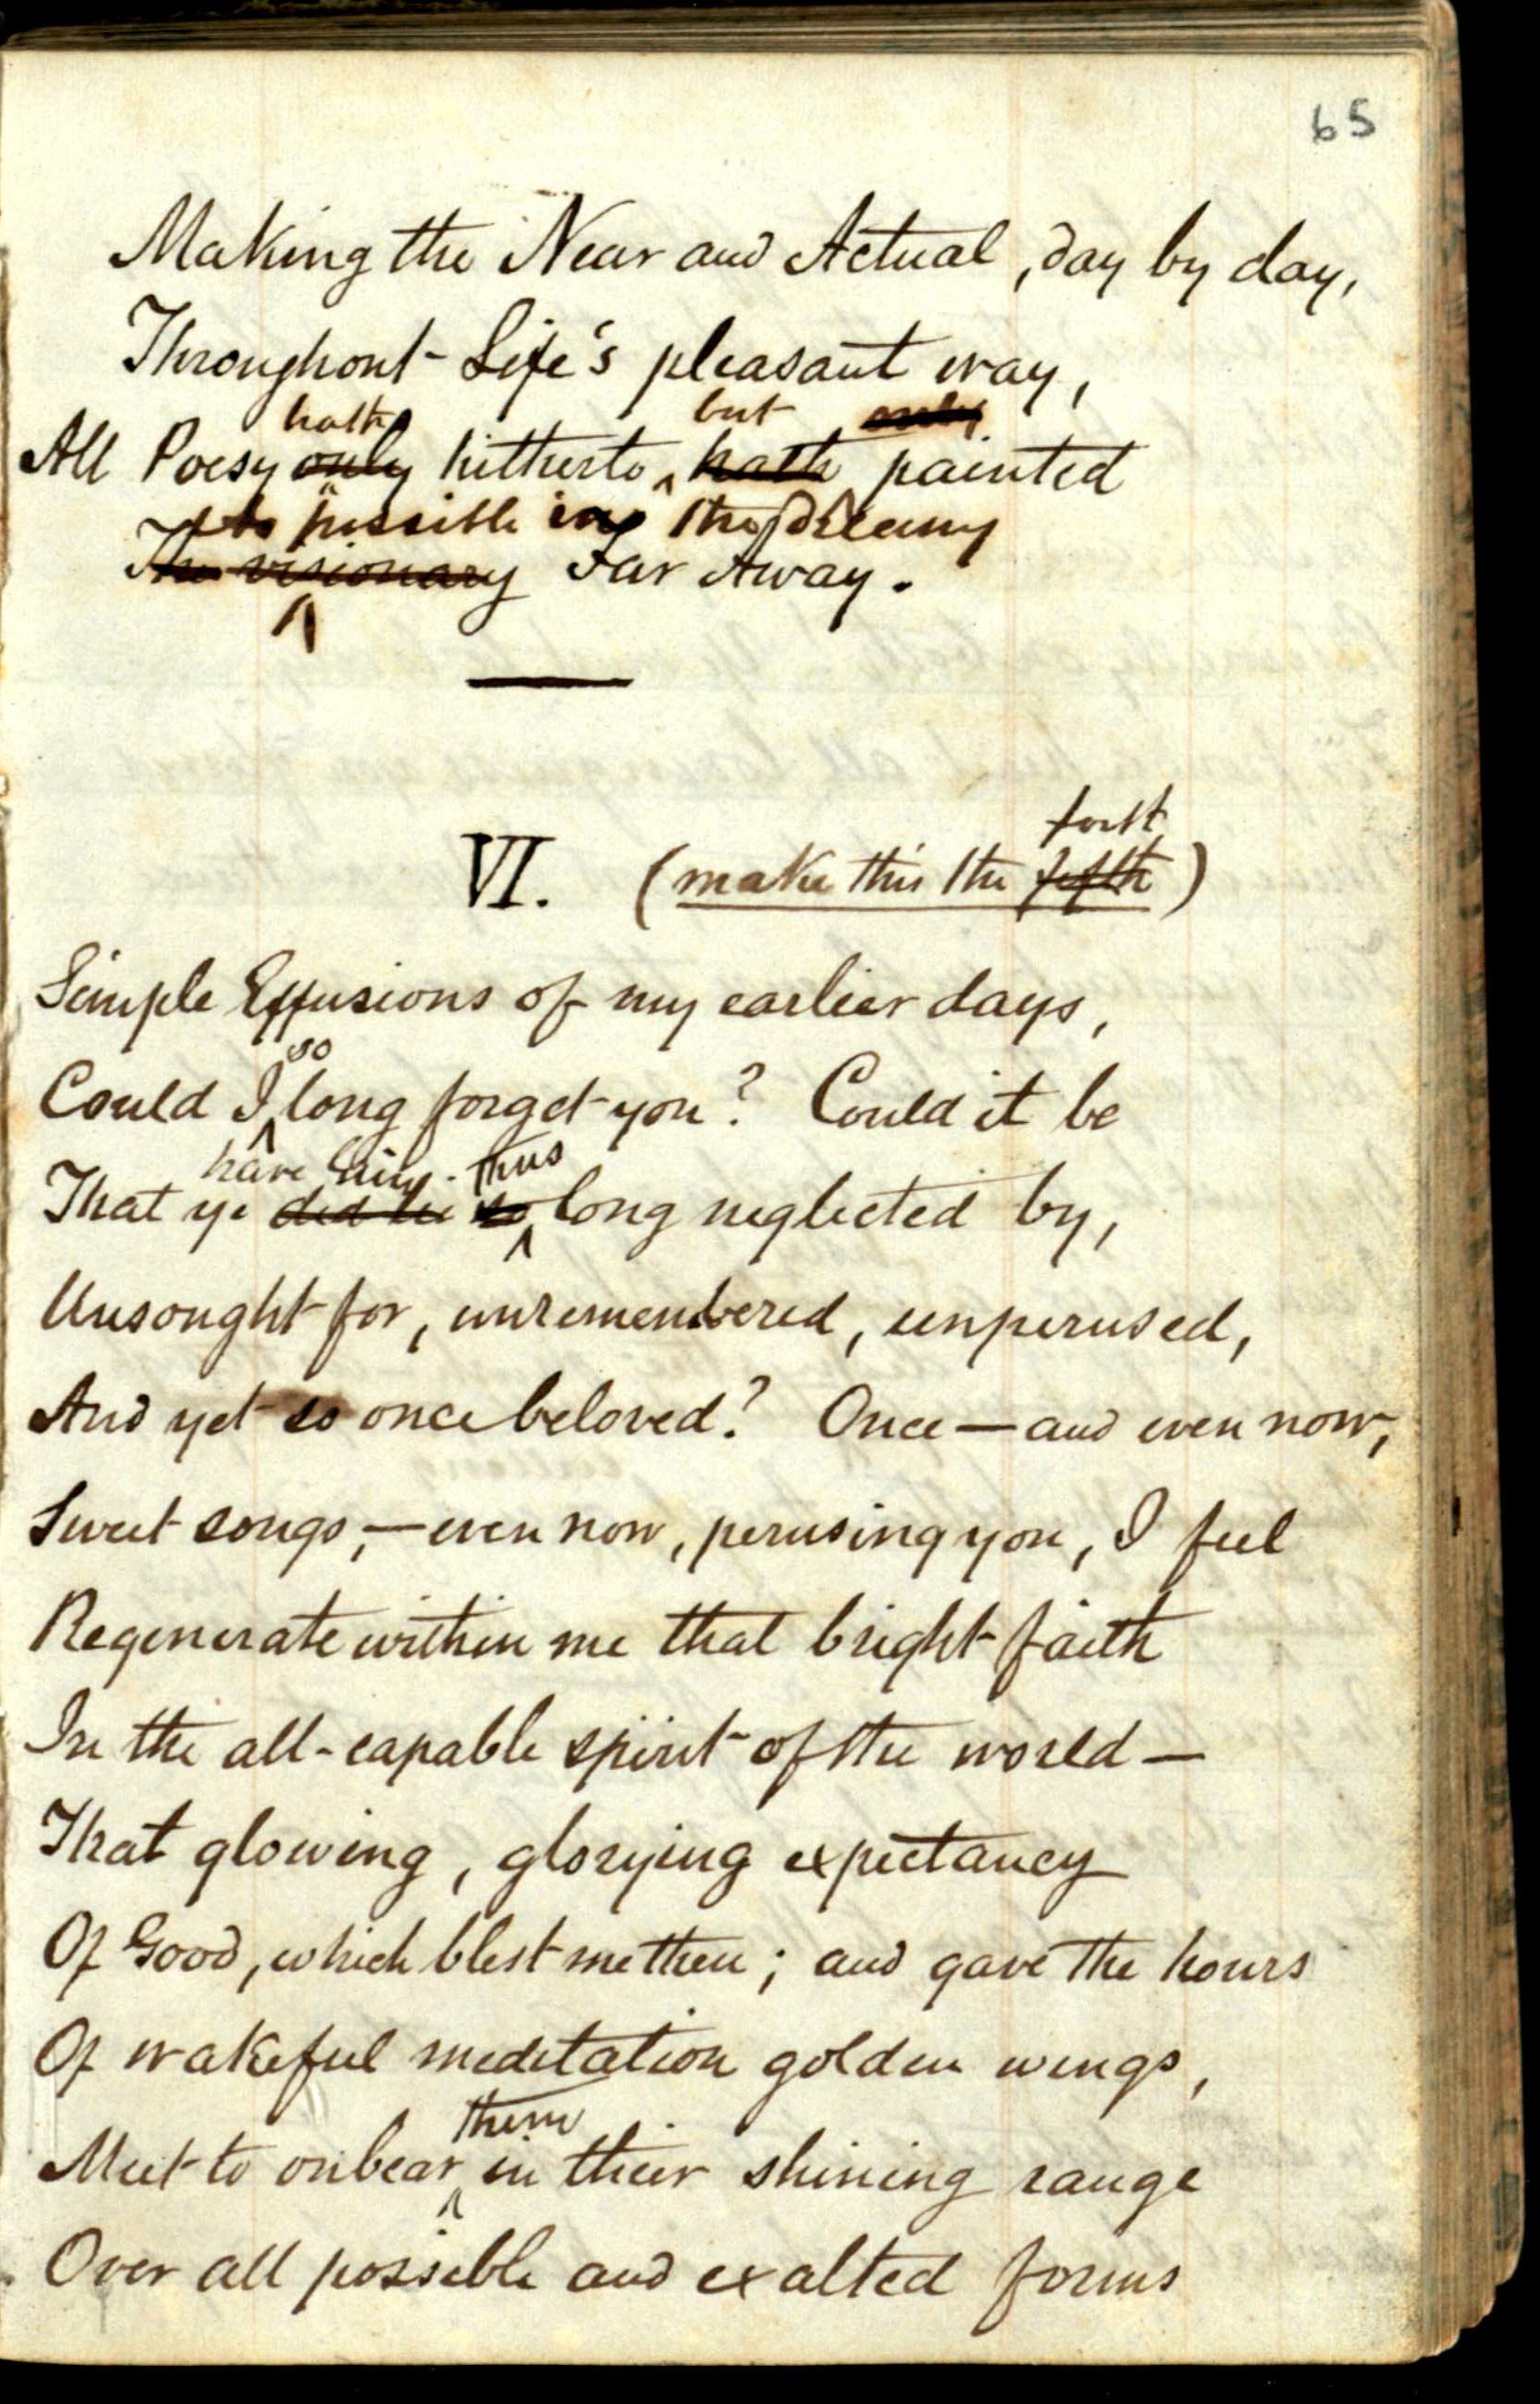 65
Making the Near and Actual, day by day,
Throughout Life's pleasant way,
hath but only
All Poesy only hitherto hath painted
As possible in the Dreamy
The visionary Far Away.
VI. (make this the fifth)
Simple Effusions of my earlier days,
so
Could I long forget you? Could it be
have lain thus
That ye did lie so long neglected by,
Unsought for, unremembered, unperused,
And yet so once beloved? Once — and even now,
Sweet songs, — even now, perusing you, I feel
Regenerate within me that bright faith
In the all-capable spirit of the world —
That glowing, glorying expectancy
Of Good, which blest me then; and gave the hours
Of wakeful meditation golden wings,
them
Meet to onbear in their shining range
Over all possible and exalted forms